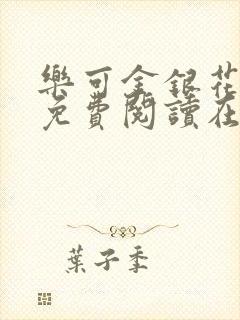 樂可金銀花
免費閱讀在
葉子季